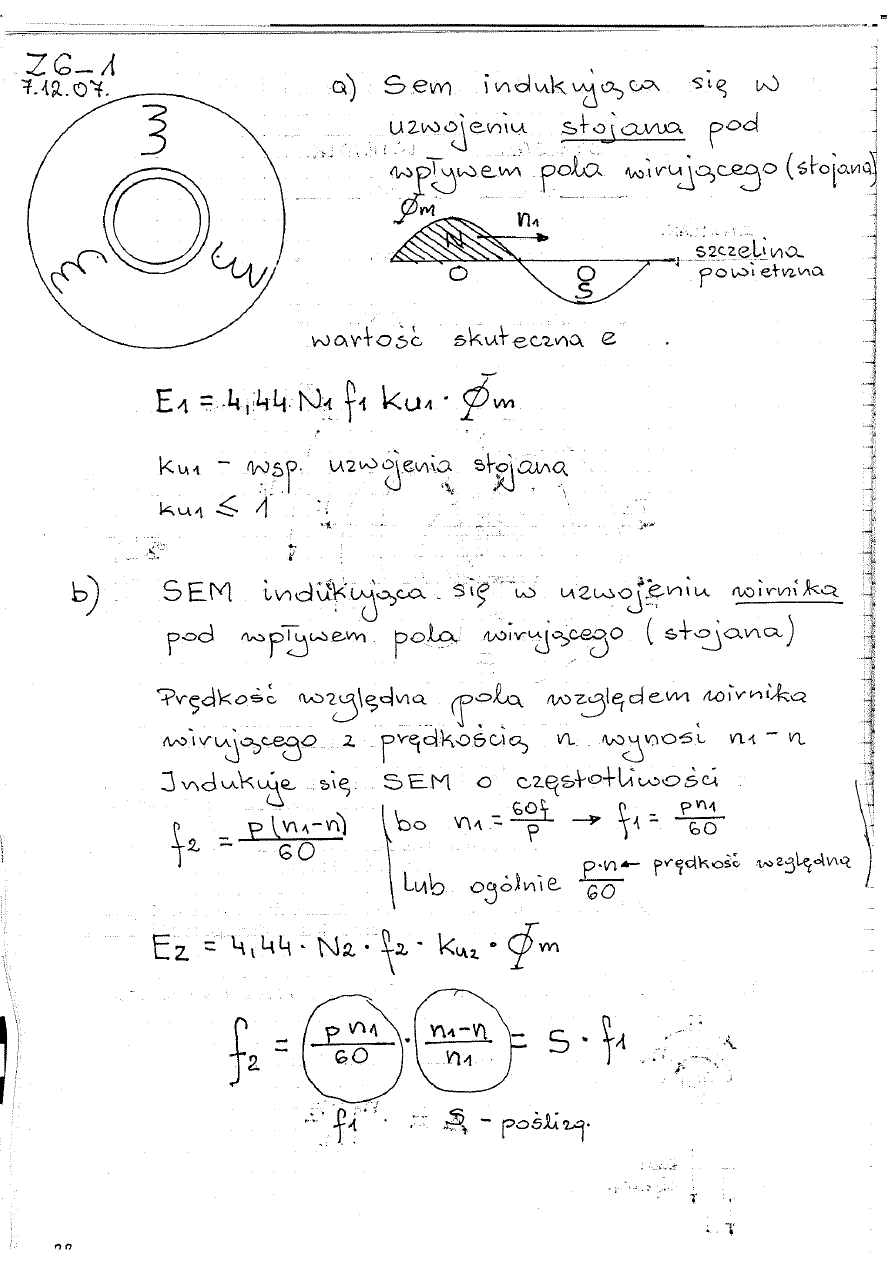 ZG-1
7.12.07.
a) Sem indukująca się w
uzwojeniu stojana pod
wpływem pola wirującego (stojana)
Φm
n1
N
S
szczelina
powietrzna
wartość skuteczna e
E1 = 4,44 N1 f1 ku1 · Φm
ku1 - wsp. uzwojenia stojana
ku1 ≤ 1
b) SEM indukująca się w uzwojeniu wirnika
pod wpływem pola wirującego (stojana)
Prędkość względna pola względem wirnika
wirującego z prędkością n wynosi n1 - n
Indukuje się SEM o częstotliwości
f2 = p(n1-n)/60 | bo n1 = 60f/p → f1 = pn1/60
Lub ogólnie p·n/60 ← prędkość względna
E2 = 4,44 · N2 · f2 · ku2 · Φm
f2 = pn1/60 · n1-n/n1 = S · f1
f1 = S - poślizg.